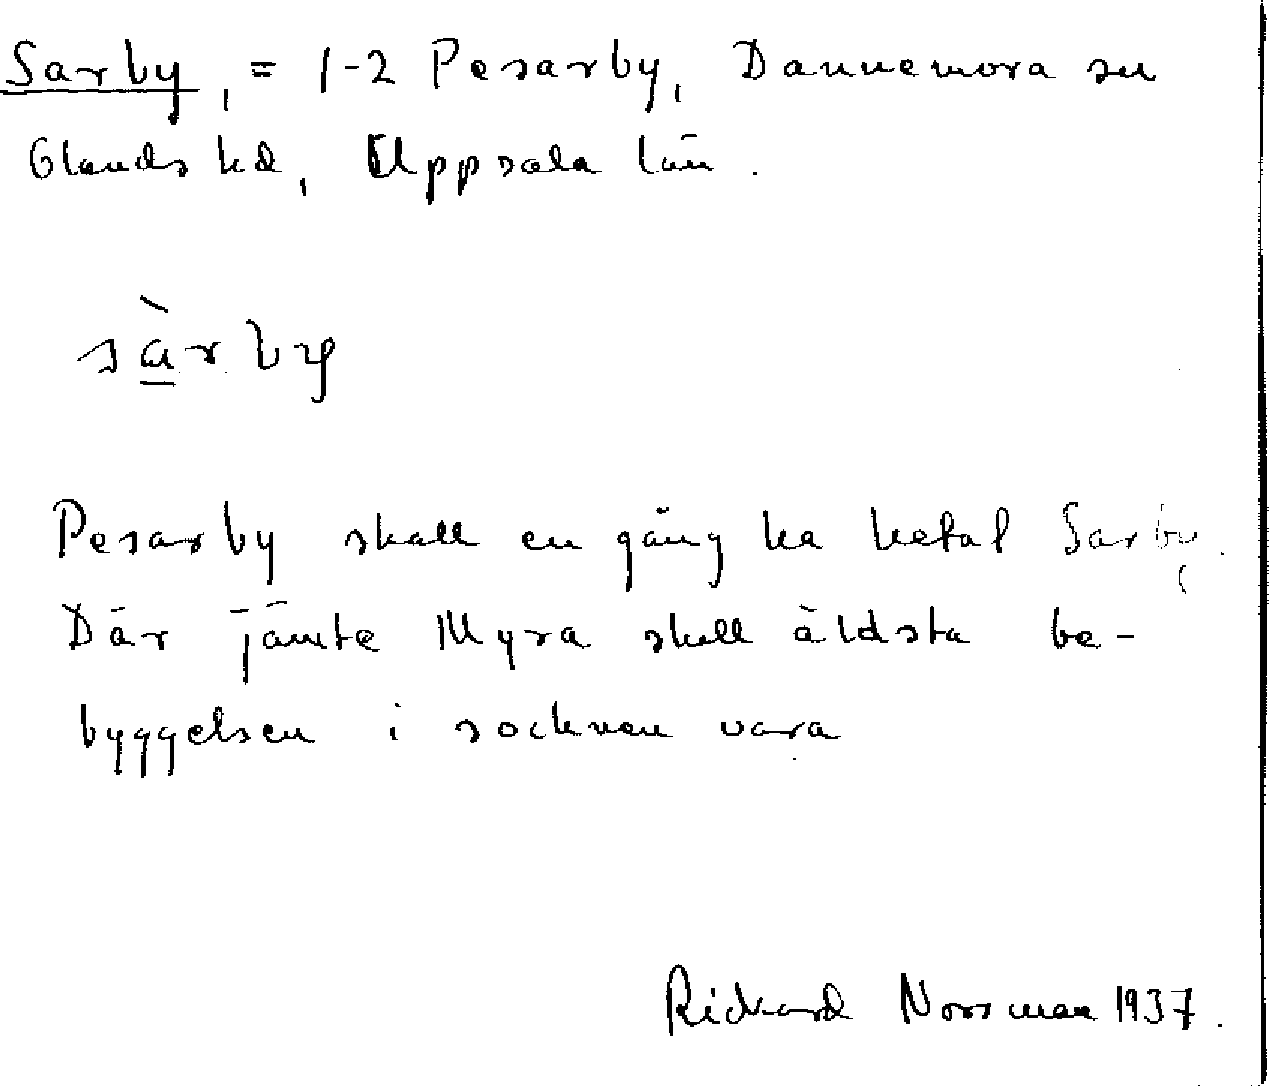 Sarby, = 1-2 Pesarby, Dannemora sn
Olands hd, Uppsala län.
sàrby
Pesarby skall en gång ha hetat Sarby.
Där jämte Myra skall äldsta be-
byggelsen i socknen vara
Rickard Norrman 1937.